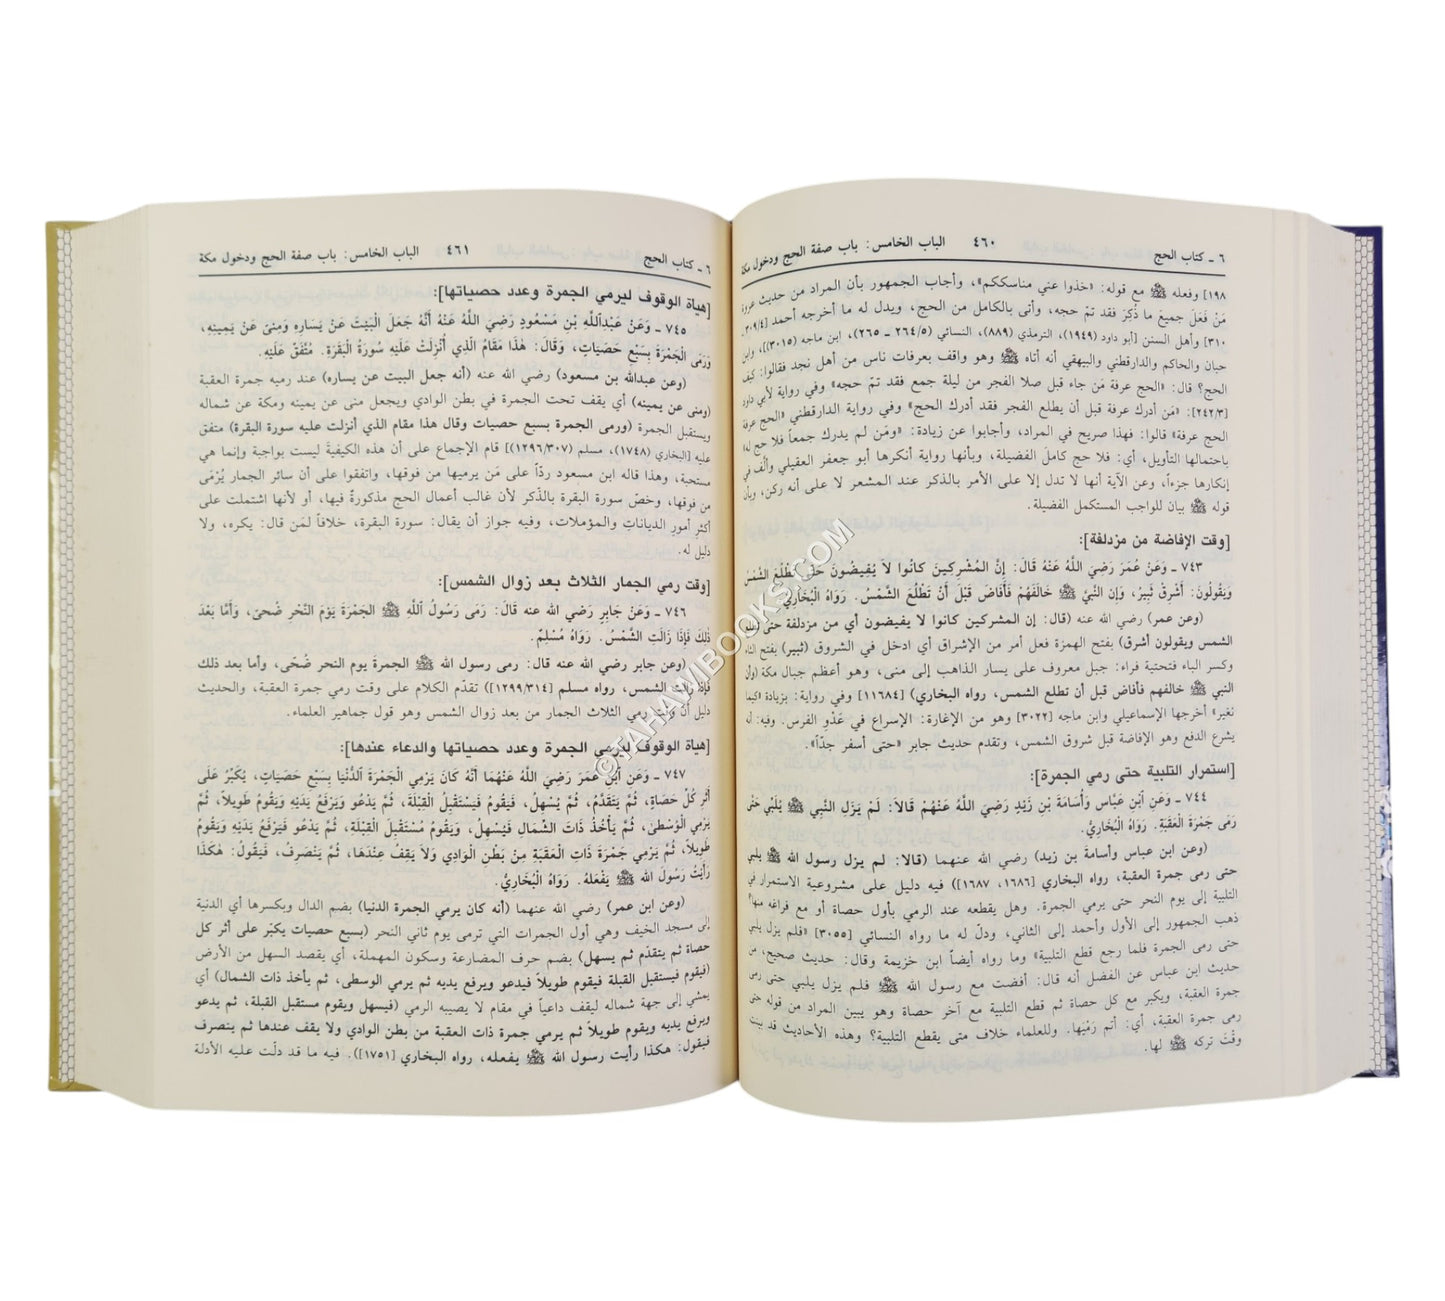 ٦ ـ كتاب الحج ٤٦٠ الباب الخامس: باب صفة الحج ودخول مكة
١٩٨] وفعله ﷺ مع قوله: «خذوا عني مناسككم»، وأجاب الجمهور بأن المراد من حديث عروة
مَنْ فَعَلَ جميعَ ما ذُكِرَ فقد تمّ حجه، وأتى بالكامل من الحج، ويدل له ما أخرجه أحمد [٣٠٩/٤،
٣١٠] وأهل السنن [أبو داود (١٩٤٩)، الترمذي (٨٨٩)، النسائي (٢٦٤/٥ ـ ٢٦٥)، ابن ماجه (٣٠١٥)]، وابن
حبان والحاكم والدارقطني والبيهقي أنه أتاه ﷺ وهو واقف بعرفات ناس من أهل نجد فقالوا: كيف
الحج؟ قال: «الحج عرفة مَن جاء قبل صلا الفجر من ليلة جمع فقد تمّ حجه» وفي رواية لأبي داود
[٢٤٢/٣]: «مَن أدرك عرفة قبل أن يطلع الفجر فقد أدرك الحج» وفي رواية الدارقطني «الحج عرفة
الحج عرفة» قالوا: فهذا صريح في المراد، وأجابوا عن زيادة: «ومَن لم يدرك جمعاً فلا حج له»
باحتمالها التأويل، أي: فلا حج كاملَ الفضيلة، وبأنها رواية أنكرها أبو جعفر العقيلي وألّف في
إنكارها جزءاً، وعن الآية أنها لا تدل إلا على الأمر بالذكر عند المشعر لا على أنه ركن، وبأن
قوله ﷺ بيان للواجب المستكمل الفضيلة.
[وقت الإفاضة من مزدلفة]:
٧٤٣ ـ وَعَنْ عُمَرَ رَضِيَ اللَّهُ عَنْهُ قَالَ: إِنَّ الْمُشْرِكِينَ كَانُوا لاَ يُفِيضُونَ حَتَّى تَطْلُعَ الشَّمْسُ
وَيَقُولُونَ: أَشْرِقْ ثَبِيرُ، وَإِن النَّبِيَّ ﷺ خَالَفَهُمْ فَأَفَاضَ قَبْلَ أَنْ تَطْلُعَ الشَّمْسُ. رَوَاهُ الْبُخَارِيُّ.
(وعن عمر) رضي الله عنه (قال: إن المشركين كانوا لا يفيضون أي من مزدلفة حتى تطلع
الشمس ويقولون أشرق) بفتح الهمزة فعل أمر من الإشراق أي ادخل في الشروق (ثبير) بفتح الثاء
وكسر الباء فتحتية فراء: جبل معروف على يسار الذاهب إلى منى، وهو أعظم جبال مكة (وأن
النبي ﷺ خالفهم فأفاض قبل أن تطلع الشمس، رواه البخاري) [١١٦٨٤] وفي رواية: بزيادة «كيما
نغير» أخرجها الإسماعيلي وابن ماجه [٣٠٢٢] وهو من الإغارة: الإسراع في عَدْوِ الفرس. وفيه: أنه
يشرع الدفع وهو الإفاضة قبل شروق الشمس، وتقدم حديث جابر «حتى أسفر جدّاً».
[استمرار التلبية حتى رمي الجمرة]:
٧٤٤ ـ وَعَنِ ابْنِ عَبَّاسٍ وَأُسَامَةَ بْنِ زَيْدٍ رَضِيَ اللَّهُ عَنْهُمْ قَالاَ: لَمْ يَزَلِ النَّبِي ﷺ يُلَبِّي حَتَّى
رَمَى جَمْرَةَ الْعَقَبَةِ. رَوَاهُ الْبُخَارِيُّ.
(وعن ابن عباس وأسامة بن زيد) رضي الله عنهما (قالا: لم يزل رسول الله ﷺ يلبي
حتى رمي جمرة العقبة، رواه البخاري [١٦٨٦، ١٦٨٧]) فيه دليل على مشروعية الاستمرار في
التلبية إلى يوم النحر حتى يرمي الجمرة. وهل يقطعه عند الرمي بأول حصاة أو مع فراغه منها؟
ذهب الجمهور إلى الأول وأحمد إلى الثاني، ودلّ له ما رواه النسائي [٣٠٥٥] «فلم يزل يلبي
حتى رمى الجمرة فلما رجع قطع التلبية» وما رواه أيضاً ابن خزيمة وقال: حديث صحيح، من
حديث ابن عباس عن الفضل أنه قال: أفضت مع رسول الله ﷺ فلم يزل يلبي حتى رمى
جمرة العقبة، ويكبر مع كل حصاة ثم قطع التلبية مع آخر حصاة وهو يبين المراد من قوله حتى
رمى جمرة العقبة، أي: أتم رَمْيَها. وللعلماء خلاف متى يقطع التلبية؟ وهذه الأحاديث قد بينت
وقْتَ تركه ﷺ لها.
٦ ـ كتاب الحج ٤٦١ الباب الخامس: باب صفة الحج ودخول مكة
[هيأة الوقوف ليرمي الجمرة وعدد حصياتها]:
٧٤٥ ـ وَعَنْ عَبْدِاللَّهِ بْنِ مَسْعُودٍ رَضِيَ اللَّهُ عَنْهُ أَنَّهُ جَعَلَ الْبَيْتَ عَنْ يَسَارِهِ وَمِنىً عَنْ يَمِينِهِ،
وَرَمَى الْجَمْرَةَ بِسَبْعِ حَصَيَاتٍ، وَقَالَ: هٰذَا مَقَامُ الَّذِي أُنْزِلَتْ عَلَيْهِ سُورَةُ الْبَقَرَةِ. مُتَّفَقٌ عَلَيْهِ.
(وعن عبدالله بن مسعود) رضي الله عنه (أنه جعل البيت عن يساره) عند رميه جمرة العقبة
(ومنى عن يمينه) أي يقف تحت الجمرة في بطن الوادي ويجعل منى عن يمينه ومكة عن شماله
ويستقبل الجمرة (ورمى الجمرة بسبع حصيات وقال هذا مقام الذي أنزلت عليه سورة البقرة) متفق
عليه [البخاري (١٧٤٨)، مسلم (١٢٩٦/٣٠٧)] قام الإجماع على أن هذه الكيفيةَ ليست بواجبة وإنما هي
مستحبة، وهذا قاله ابن مسعود ردّاً على مَن يرميها من فوقها، واتفقوا على أن سائر الجمار يُرْمَى
من فوقها، وخصّ سورة البقرة بالذّكر لأن غالب أعمال الحج مذكورةٌ فيها، أو لأنها اشتملت على
أكثرِ أمورِ الدياناتِ والمؤملات، وفيه جواز أن يقال: سورة البقرة، خلافاً لمَن قال: يكره، ولا
دليل له.
[وقت رمي الجمار الثلاث بعد زوال الشمس]:
٧٤٦ ـ وَعَنْ جَابِرٍ رَضي الله عنه قالَ: رَمَى رَسُولُ اللَّهِ ﷺ الْجَمْرَةَ يَوْمَ النَّحْرِ ضُحىً، وَأَمَّا بَعْدَ
ذٰلِكَ فَإِذَا زَالَتِ الشَّمْسُ. رَوَاهُ مُسْلِمٌ.
(وعن جابر رضي الله عنه قال: رمى رسول الله ﷺ الجمرةَ يوم النحر ضُحًى، وأما بعد ذلك
فإذا زالت الشمس، رواه مسلم [١٢٩٩/٣١٤]) تقدّم الكلام على وقت رمي جمرة العقبة، والحديث
دليل أن وقت رمي الثلاث الجمار من بعد زوال الشمس وهو قول جماهير العلماء.
[هيأة الوقوف ليرمي الجمرة وعدد حصياتها والدعاء عندها]:
٧٤٧ ـ وَعَنِ ابْنِ عُمَرَ رَضِيَ اللَّهُ عَنْهُمَا أَنَّهُ كَانَ يَرْمِي الْجَمْرَةَ الدُّنْيَا بِسَبْعِ حَصَيَاتٍ، يُكَبِّرُ عَلَى
أَثَرِ كُلِّ حَصَاةٍ، ثُمَّ يَتَقَدَّمُ، ثُمَّ يُسْهِلُ، فَيَقُومُ فَيَسْتَقْبِلُ الْقِبْلَةَ، ثُمَّ يَدْعُو وَيَرْفَعُ يَدَيْهِ وَيَقُومُ طَوِيلاً، ثُمَّ
يَرْمِي الْوُسْطَى، ثُمَّ يَأْخُذُ ذَاتَ الشِّمَالِ فَيُسْهِلُ، وَيَقُومُ مُسْتَقْبِلَ الْقِبْلَةِ، ثُمَّ يَدْعُو فَيَرْفَعُ يَدَيْهِ وَيَقُومُ
طَوِيلاً، ثُمَّ يَرْمِي جَمْرَةَ ذَاتِ الْعَقَبَةِ مِنْ بَطْنِ الْوَادِي وَلاَ يَقِفُ عِنْدَهَا، ثُمَّ يَنْصَرِفُ، فَيَقُولُ: هٰكَذَا
رَأَيْتُ رَسُولَ الله ﷺ يَفْعَلُهُ. رَوَاهُ الْبُخَارِيُّ.
(وعن ابن عمر) رضي الله عنهما (أنه كان يرمي الجمرة الدنيا) بضم الدال وبكسرها أي الدنية
إلى مسجد الخيف وهي أول الجمرات التي ترمى يوم ثاني النحر (بسبع حصيات يكبّر على أثر كل
حصاة ثم يتقدّم ثم يسهل) بضم حرف المضارعة وسكون المهملة، أي يقصد السهل من الأرض
(فيقوم فيستقبل القبلة فيقوم طويلاً فيدعو ويرفع يديه ثم يرمي الوسطى، ثم يأخذ ذات الشمال) أي
يمشي إلى جهة شماله ليقف داعياً في مقام لا يصيبه الرمي (فيسهل ويقوم مستقبل القبلة، ثم يدعو
ويرفع يديه ويقوم طويلاً ثم يرمي جمرة ذات العقبة من بطن الوادي ولا يقف عندها ثم ينصرف
فيقول: هكذا رأيت رسول الله ﷺ يفعله، رواه البخاري [١٧٥١]). فيه ما قد دلّت عليه الأدلة
©TAHAMIBOOKS.COM